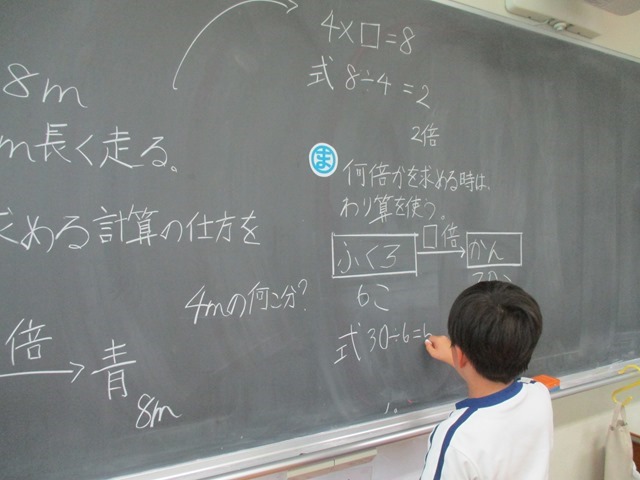 8m
m長く走る。
求める計算の仕方を
4mの何こ分?
倍
青
8m
4×□=8
式 8÷4=2
2倍
ま
何倍かを求める時は、
わり算を使う。
ふくろ □倍 かん
6こ
式 30÷6=